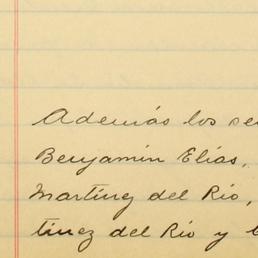 Además los se
Benjamín Elías,
Martínez del Río,
tínez del Río y